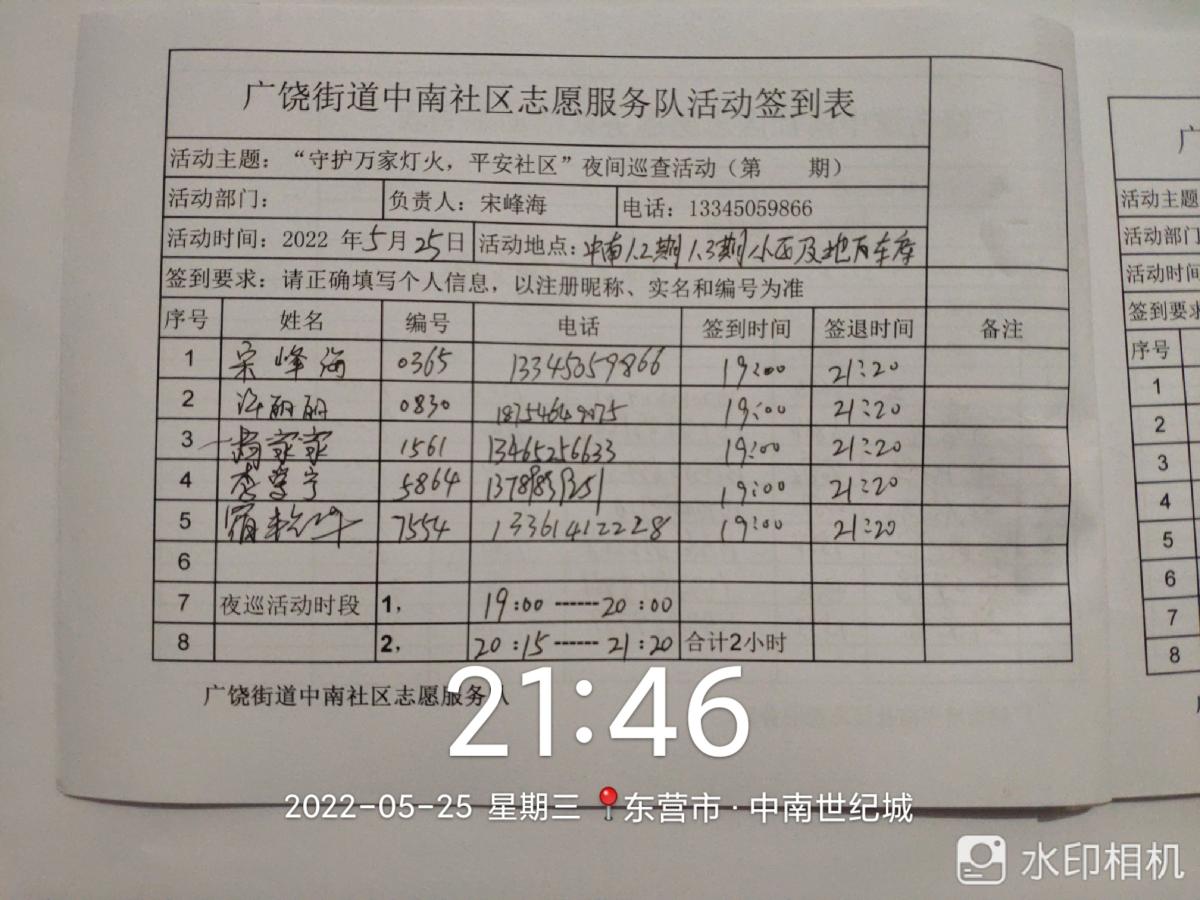 广饶街道中南社区志愿服务队活动签到表
活动主题：“守护万家灯火，平安社区”夜间巡查活动（第 期）
活动部门： 负责人：宋峰海 电话：13345059866
活动时间：2022 年5月25日 活动地点：中南1.2期1.3期小区及地下车库
签到要求：请正确填写个人信息，以注册昵称、实名和编号为准
序号 姓名 编号 电话 签到时间 签退时间 备注
1 宋峰海 0365 13345059866 19:00 21:20
2 许丽丽 0830 19:00 21:20
3 家家 1561 13465256633 19:00 21:20
4 李学宁 5864 19:00 21:20
5 7554 13361412228 19:00 21:20
6
7 夜巡活动时段 1， 19:00 ------ 20:00
8 2， 20:15 ------ 21:20 合计2小时
广饶街道中南社区志愿服务队
21:46
2022-05-25 星期三 东营市·中南世纪城
水印相机
广
活动主题
活动部门
活动时间
签到要求
序号
1
2
3
4
5
6
7
8